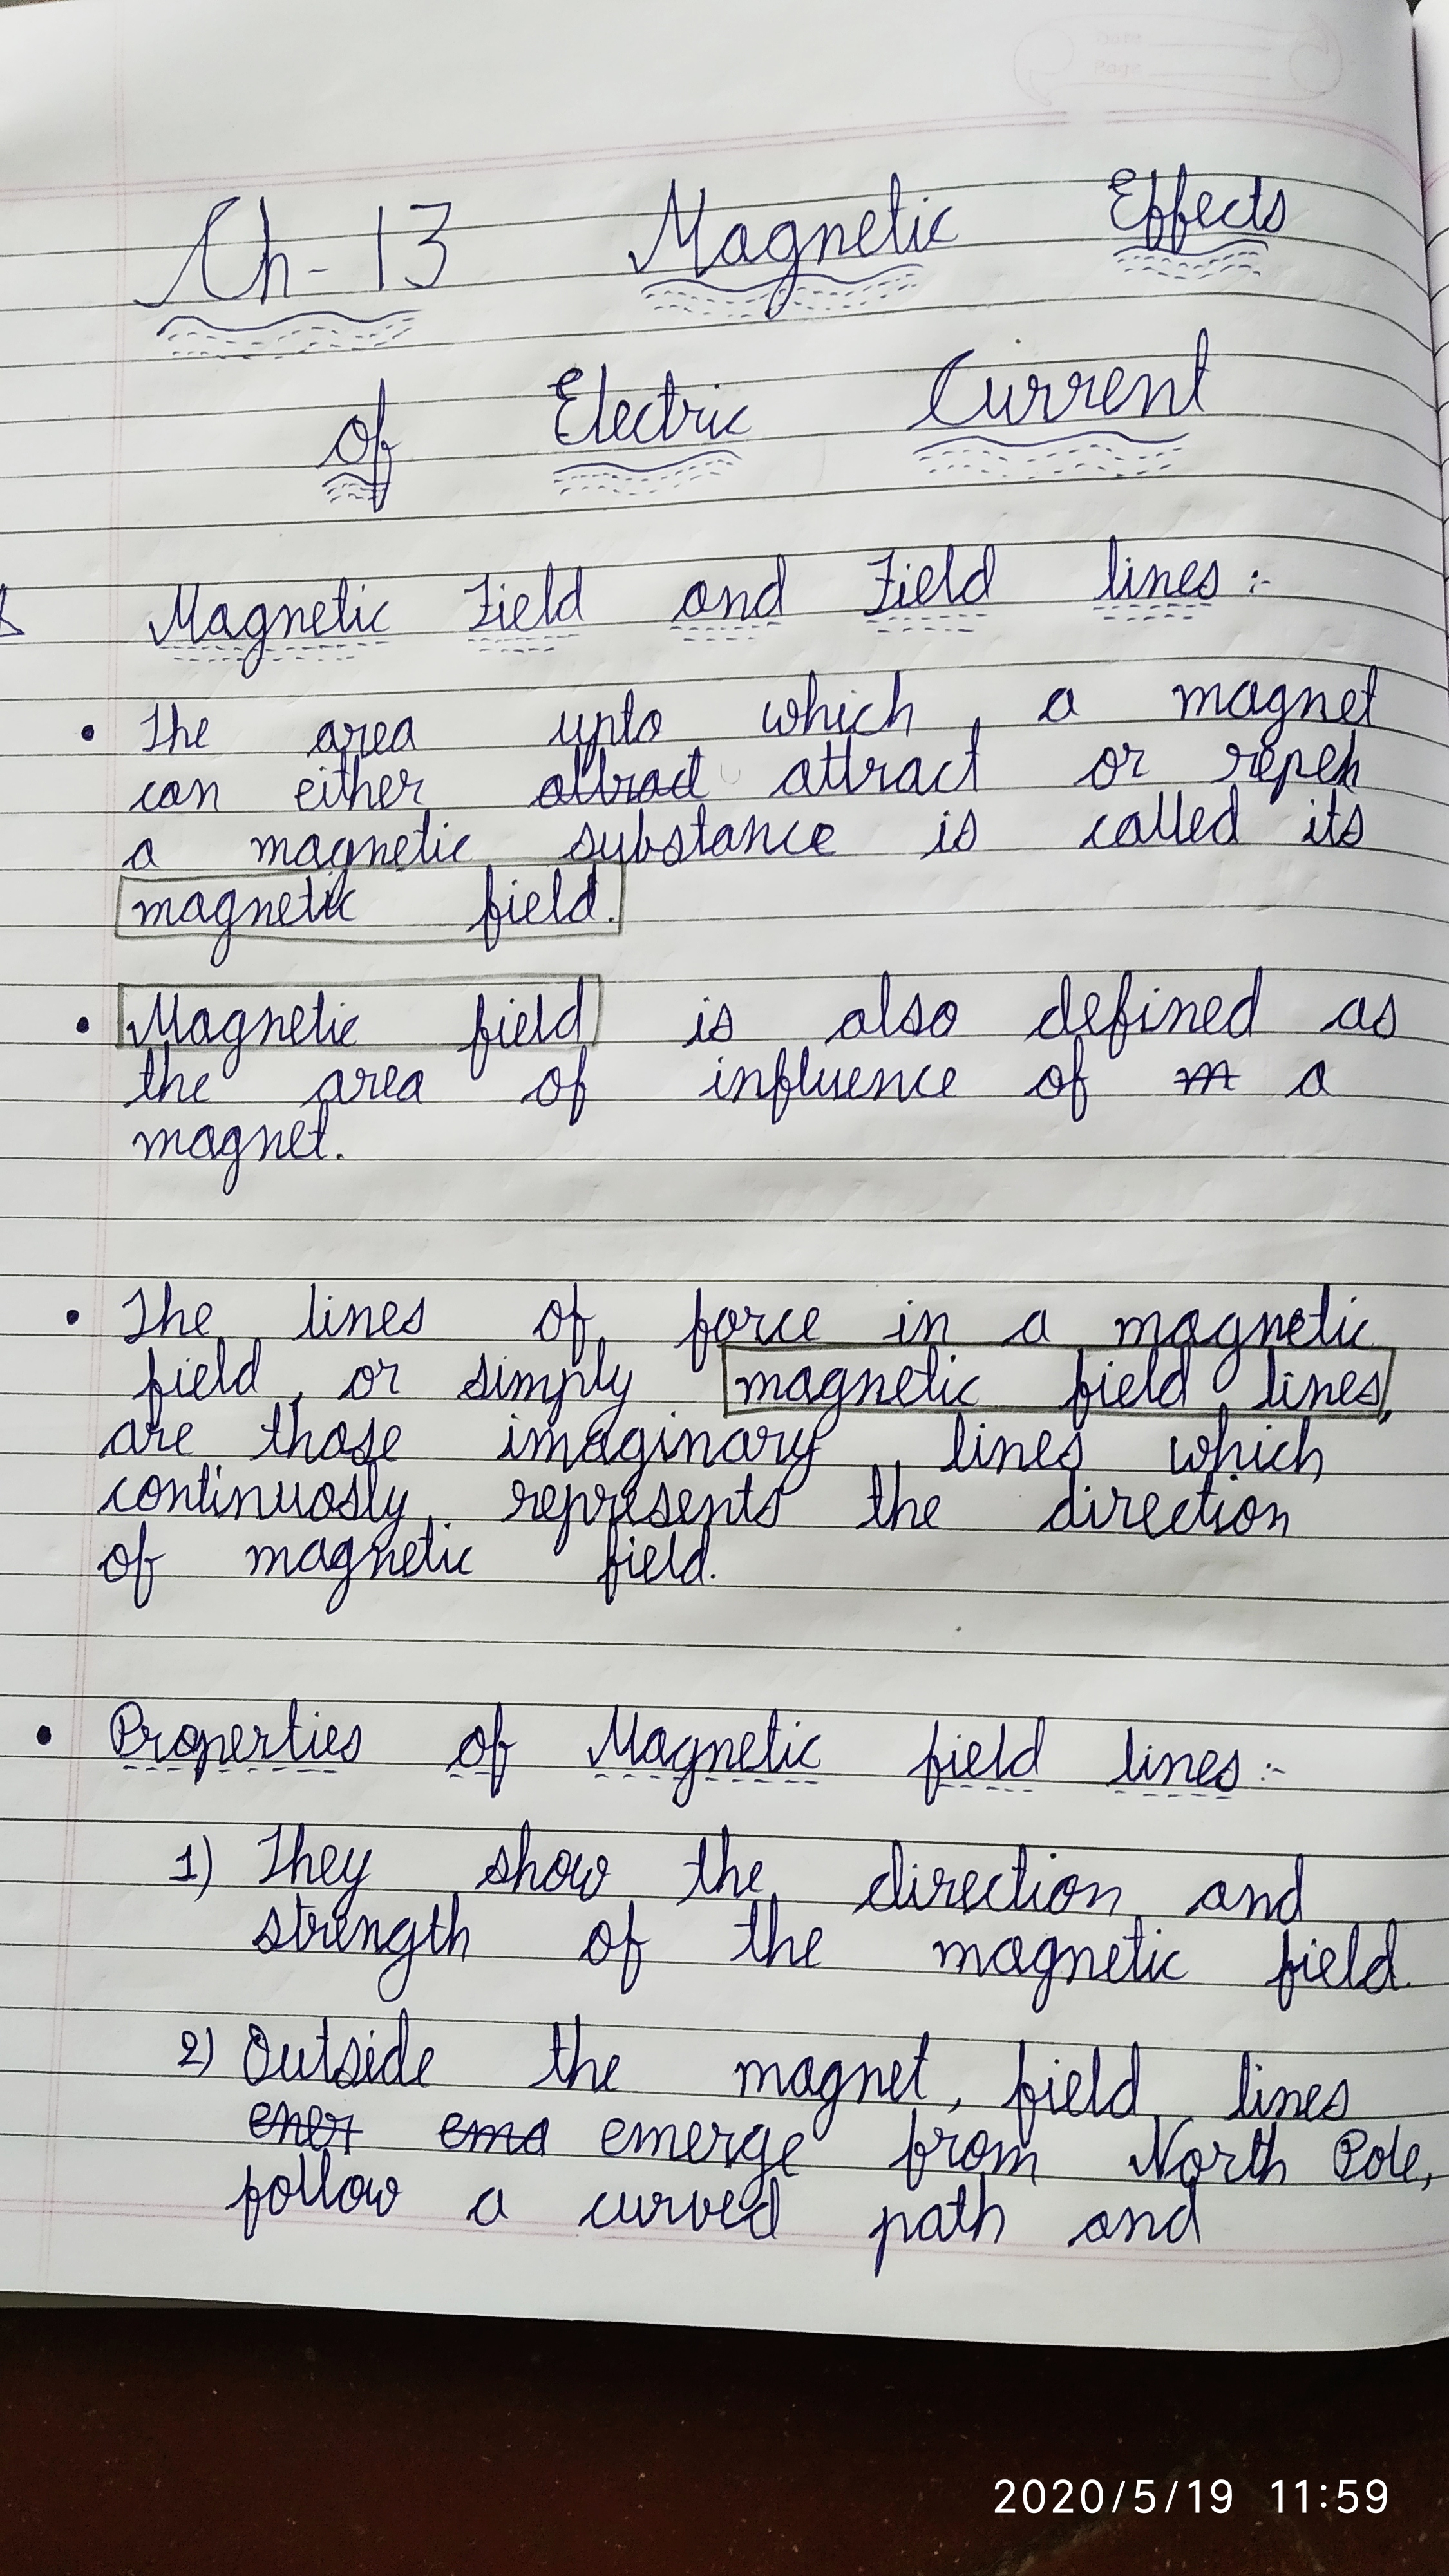 Ch-13 Magnetic Effects
of Electric Current
Magnetic Field and Field lines :-
• The area upto which, a magnet
can either attract attract or repel
a magnetic substance is called its
magnetic field.
• Magnetic field is also defined as
the area of influence of m a
magnet.
• The lines of force in a magnetic
field, or simply magnetic field lines,
are those imaginary lines which
continuosly represents the direction
of magnetic field.
• Properties of Magnetic field lines :-
1) They show the direction and
strength of the magnetic field.
2) Outside the magnet, field lines
emerge from North Pole,
follow a curved path and
2020/5/19 11:59